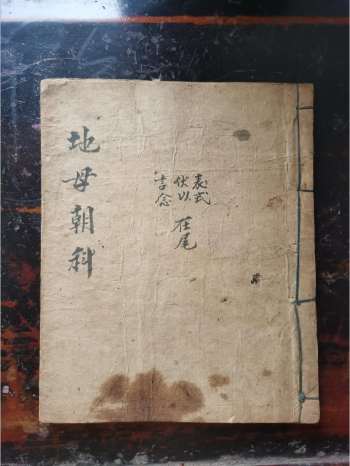 表式
伏以
言念
在尾
地母朝科